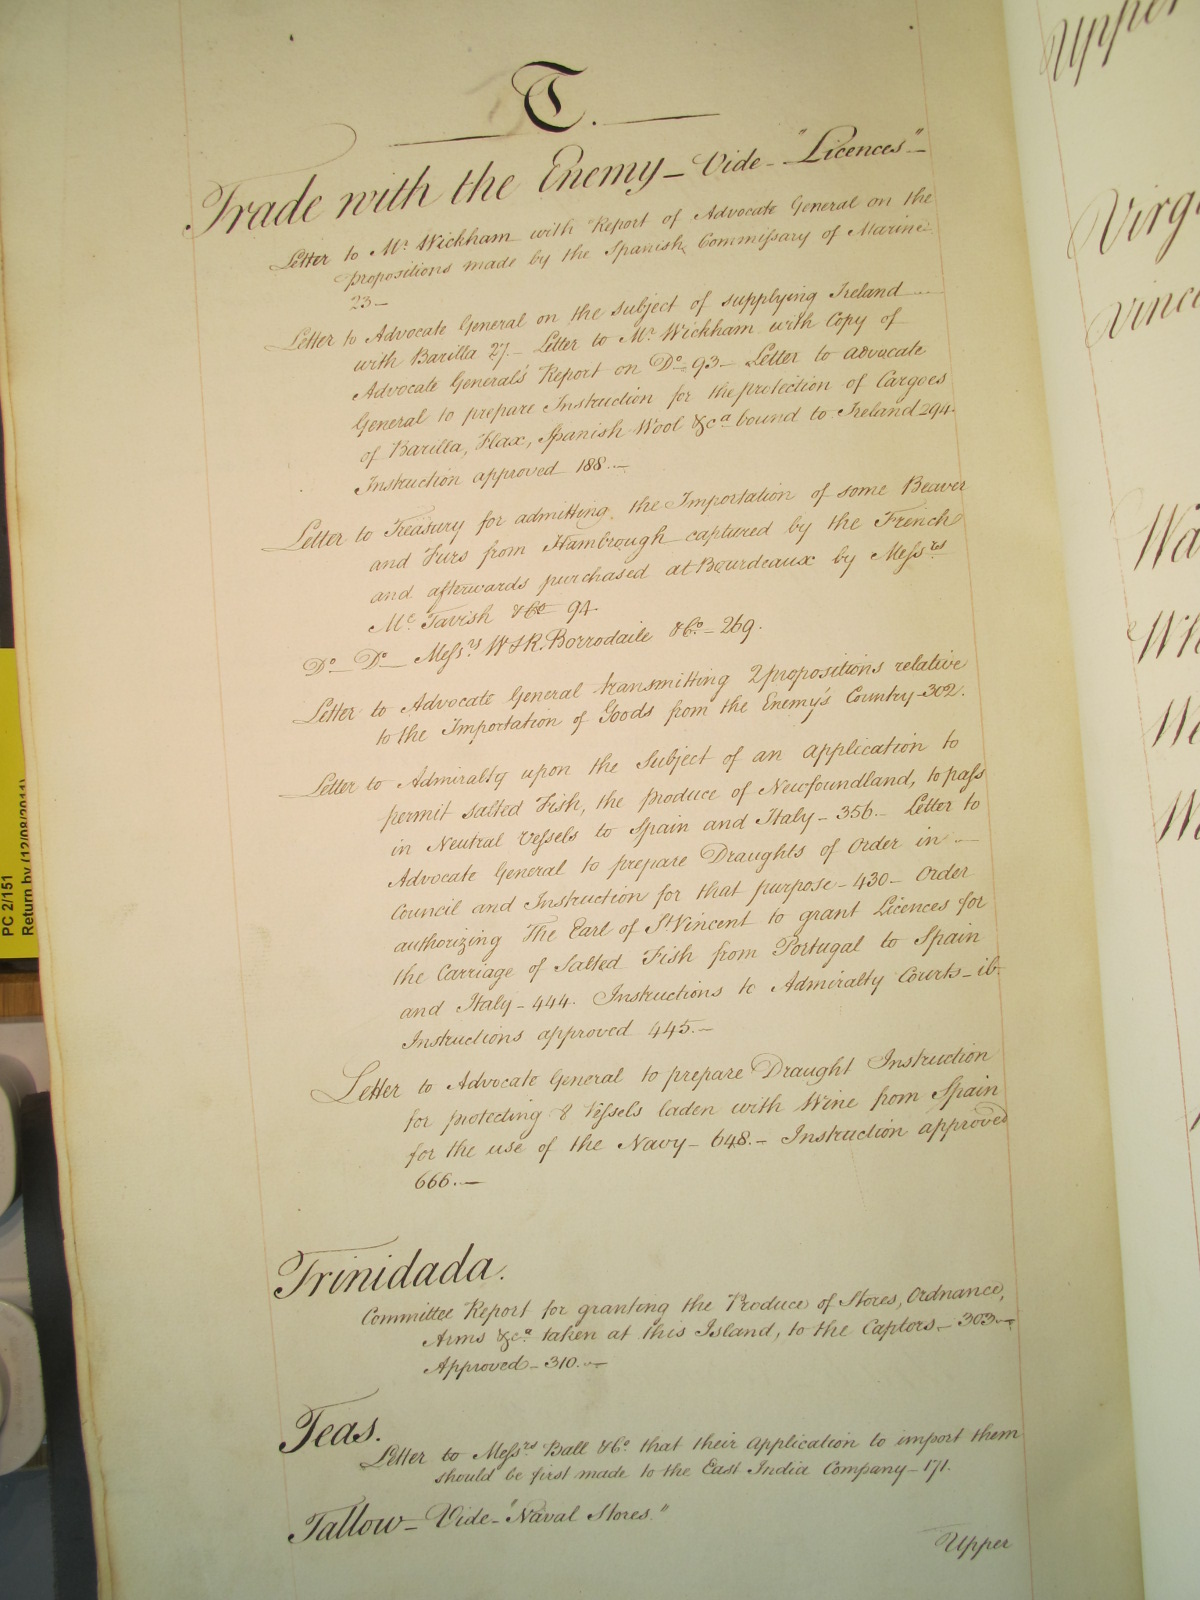 T.
Trade with the Enemy – Vide – "Licences" –
Letter to Mr. Wickham with Report of Advocate General on the
propositions made by the Spanish Commissary of Marine
23 –
Letter to Advocate General on the subject of supplying Ireland
with Barilla 27. – Letter to Mr. Wickham with Copy of
Advocate General's Report on Do. 93 – Letter to advocate
General to prepare Instruction for the protection of Cargoes
of Barilla, Flax, Spanish Wool &ca. bound to Ireland 294.
Instruction approved 188. –
Letter to Treasury for admitting the Importation of some Beaver
and Furs from Hambrough captured by the French
and afterwards purchased at Bourdeaux by Messrs
Mc. Tavish &Co 94.
Do – Do – Messrs W & R. Borrodaile &Co. – 269.
Letter to Advocate General transmitting 2 propositions relative
to the Importation of Goods from the Enemy's Country – 302.
Letter to Admiralty upon the Subject of an application to
permit salted Fish, the produce of Newfoundland, to pass
in Neutral Vessels to Spain and Italy – 356. – Letter to
Advocate General to prepare Draughts of Order in –
Council and Instruction for that purpose – 430 – Order
authorizing The Earl of St Vincent to grant Licences for
the Carriage of Salted Fish from Portugal to Spain
and Italy – 444. Instructions to Admiralty Courts – ib.
Instructions approved 445. –
Letter to Advocate General to prepare Draught Instruction
for protecting 8 Vessels laden with Wine from Spain
for the use of the Navy – 648. – Instruction approved
666. –
Trinidada.
Committee Report for granting the Produce of Stores, Ordnance,
Arms &ca. taken at this Island, to the Captors – 303 –
Approved – 310. –
Teas.
Letter to Messrs Ball &Co. that their application to import them
should be first made to the East India Company – 171.
Tallow – Vide – "Naval Stores."
Upper
PC 2/151
Return by (12/08/2011)
Upper
Virg
Vinc
Wa
Wh
We